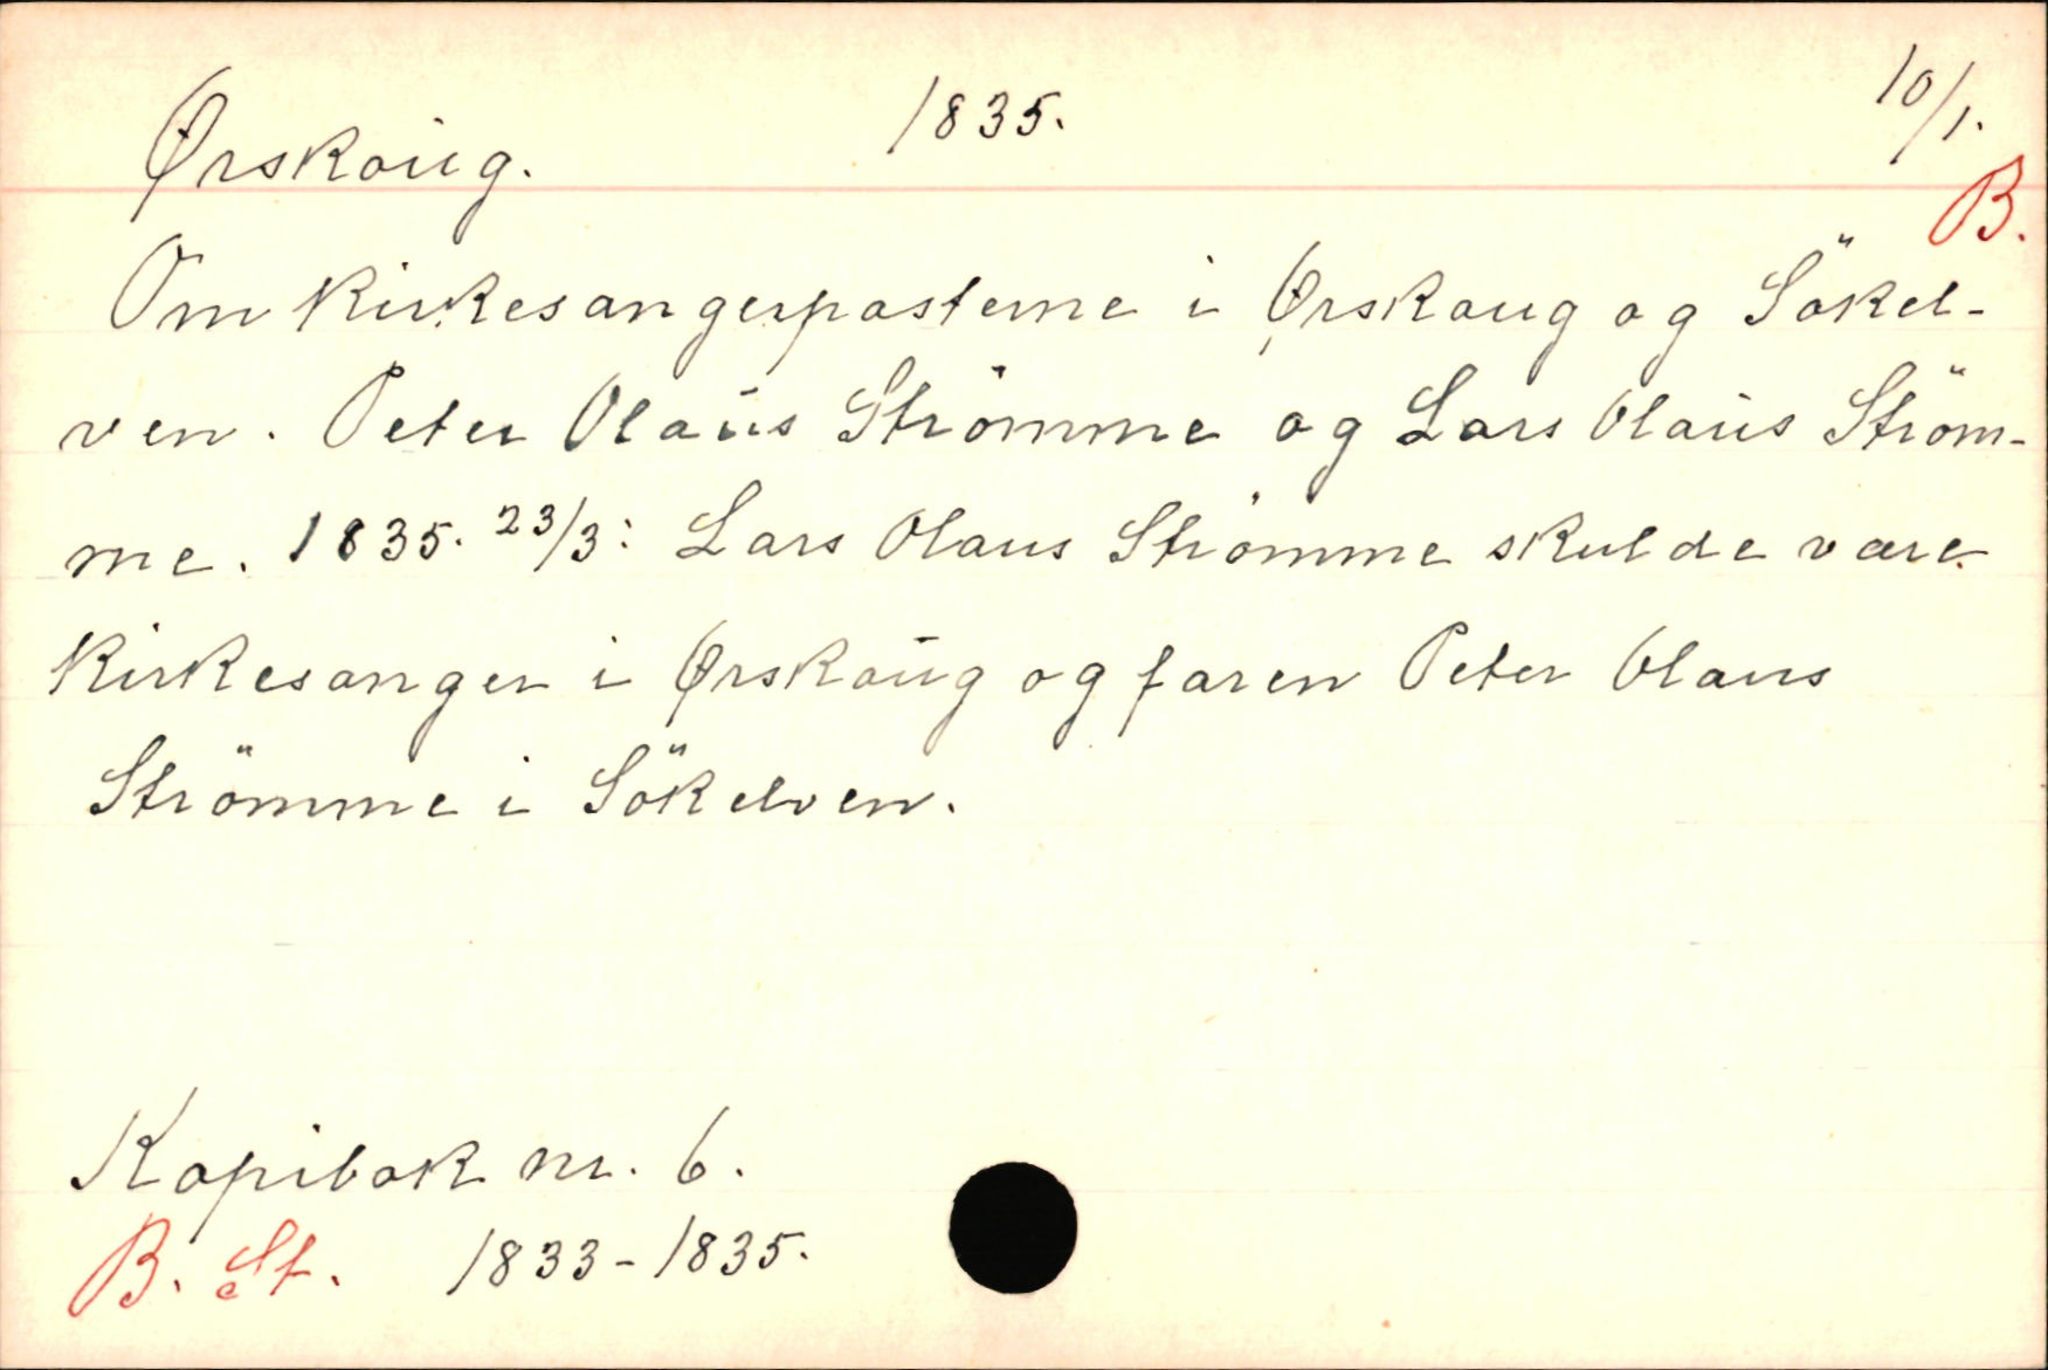 Ørskoug. 1835. 10/1.
B.
Om Kirkesangerposterne i Ørskoug og Sökel-
ven. Peter Olaus Strömme og Lars Olaus Ström-
me. 1835. 23/3: Lars Olaus Strömme skulde være
Kirkesanger i Ørskoug og faren Peter Olaus
Strömme i Sökelven.
Kopibok nr. 6.
B. St. 1833-1835.